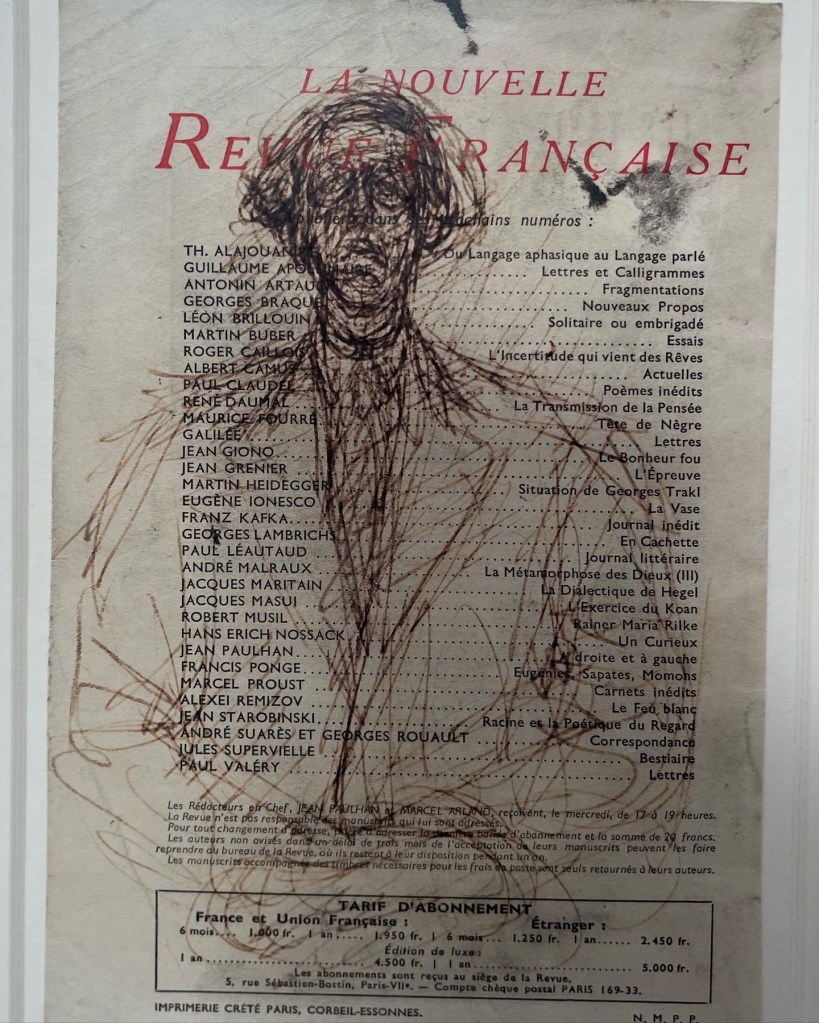 LA NOUVELLE
REVUE FRANÇAISE
publiera dans ses prochains numéros :
TH. ALAJOUANINE Du Langage aphasique au Langage parlé
GUILLAUME APOLLINAIRE .............. Lettres et Calligrammes
ANTONIN ARTAUD .............. Fragmentations
GEORGES BRAQUE .............. Nouveaux Propos
LÉON BRILLOUIN .............. Solitaire ou embrigadé
MARTIN BUBER .............. Essais
ROGER CAILLOIS .............. L'Incertitude qui vient des Rêves
ALBERT CAMUS .............. Actuelles
PAUL CLAUDEL .............. Poèmes inédits
RENÉ DAUMAL .............. La Transmission de la Pensée
MAURICE FOURRÉ .............. Tête de Nègre
GALILÉE .............. Lettres
JEAN GIONO .............. Le Bonheur fou
JEAN GRENIER .............. L'Épreuve
MARTIN HEIDEGGER .............. Situation de Georges Trakl
EUGÈNE IONESCO .............. La Vase
FRANZ KAFKA .............. Journal inédit
GEORGES LAMBRICHS .............. En Cachette
PAUL LÉAUTAUD .............. Journal littéraire
ANDRÉ MALRAUX .............. La Métamorphose des Dieux (III)
JACQUES MARITAIN .............. La Dialectique de Hegel
JACQUES MASUI .............. L'Exercice du Koan
ROBERT MUSIL .............. Rainer Maria Rilke
HANS ERICH NOSSACK .............. Un Curieux
JEAN PAULHAN .............. A droite et à gauche
FRANCIS PONGE .............. Eugénies, Sapates, Momons
MARCEL PROUST .............. Carnets inédits
ALEXEI REMIZOV .............. Le Feu blanc
JEAN STAROBINSKI .............. Racine et la Poétique du Regard
ANDRÉ SUARÈS ET GEORGES ROUAULT .............. Correspondance
JULES SUPERVIELLE .............. Bestiaire
PAUL VALÉRY .............. Lettres
Les Rédacteurs en Chef, JEAN PAULHAN et MARCEL ARLAND, reçoivent, le mercredi, de 17 à 19 heures.
La Revue n'est pas responsable des manuscrits qui lui sont adressés.
Pour tout changement d'adresse, prière d'adresser la dernière bande d'abonnement et la somme de 20 francs.
Les auteurs non avisés dans un délai de trois mois de l'acceptation de leurs manuscrits peuvent les faire
reprendre au bureau de la Revue, où ils restent à leur disposition pendant un an.
Les manuscrits accompagnés des timbres nécessaires pour les frais de poste sont seuls retournés à leurs auteurs.
TARIF D'ABONNEMENT
France et Union Française : Étranger :
6 mois.... 1.000 fr. 1 an..... 1.950 fr. | 6 mois... 1.250 fr. 1 an...... 2.450 fr.
Édition de luxe :
1 an .............. 4.500 fr. | 1 an .............. 5.000 fr.
Les abonnements sont reçus au siège de la Revue,
5, rue Sébastien-Bottin, Paris-VIIe. — Compte chèque postal PARIS 169-33.
IMPRIMERIE CRÉTÉ PARIS, CORBEIL-ESSONNES. N. M. P. P.